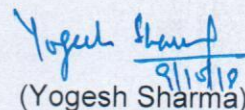 Yogesh Sharma
9/10/18
(Yogesh Sharma)